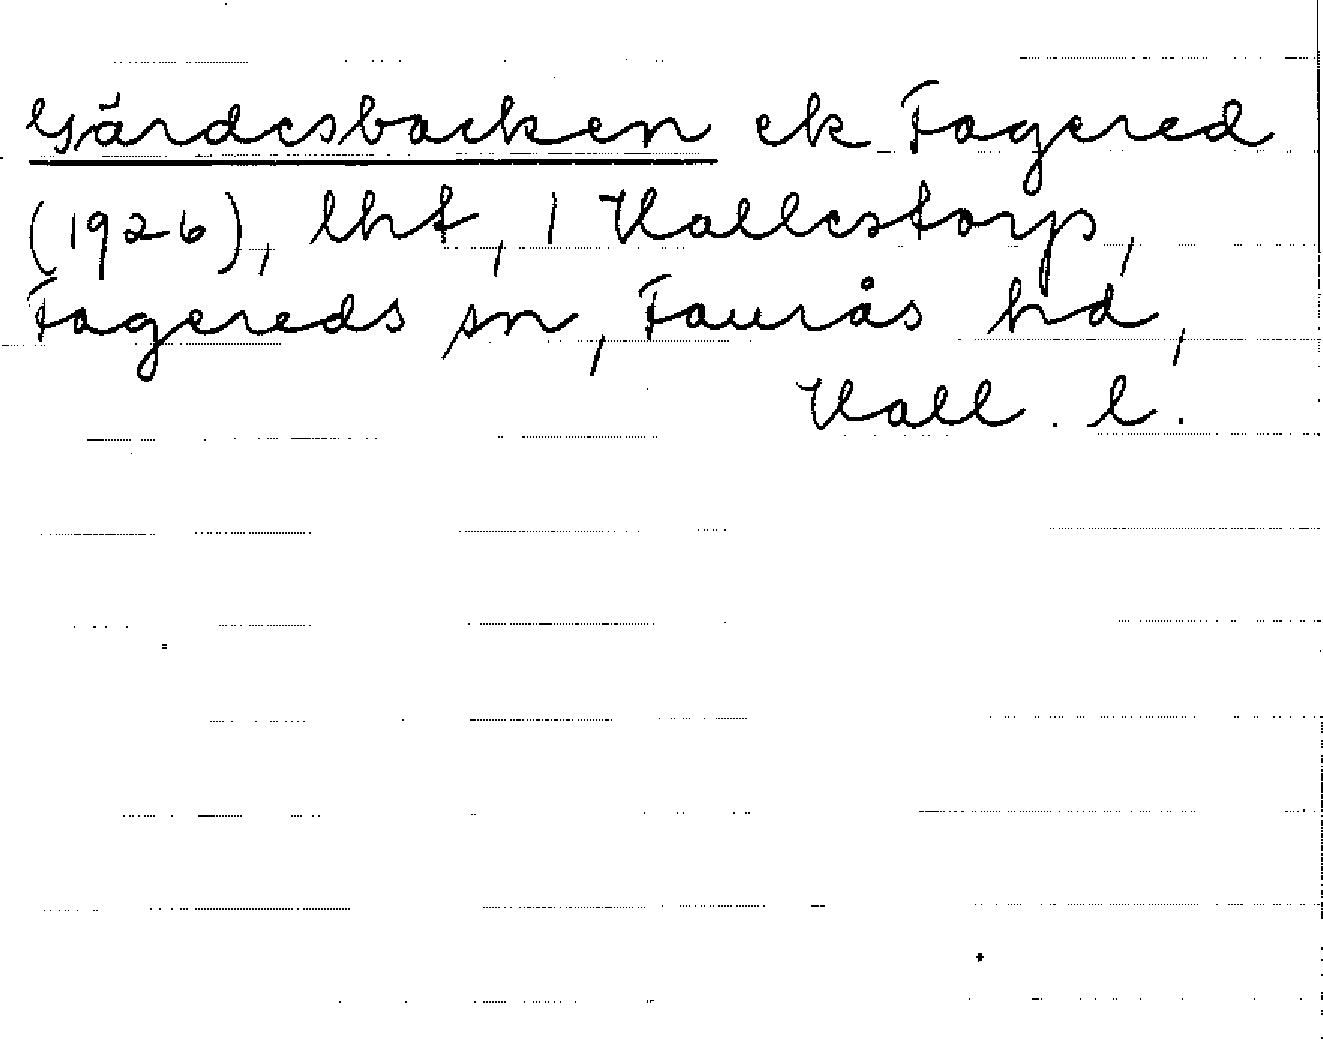 Gärdesbacken ek Fagered
(1926), lht, 1 Hallestorp,
Fagereds sn, Faurås hd,
Hall. l.